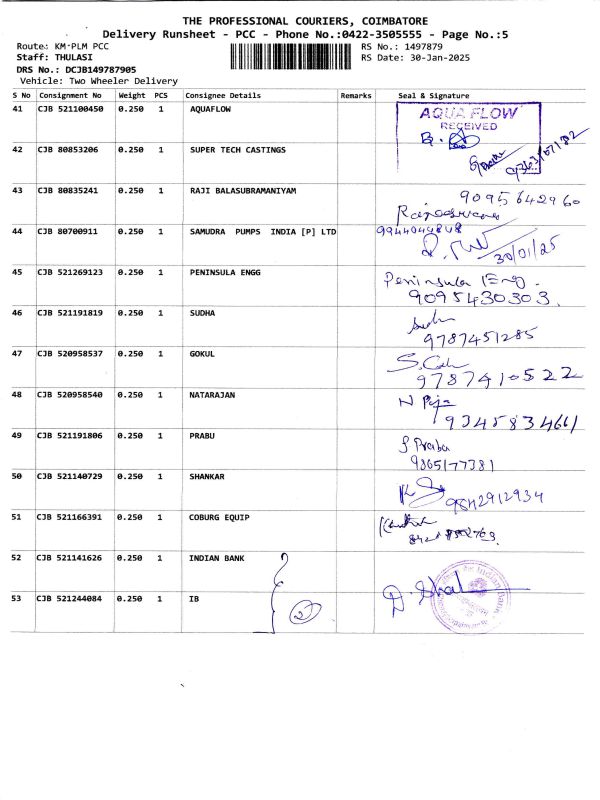 THE PROFESSIONAL COURIERS, COIMBATORE
Delivery Runsheet - PCC - Phone No.:0422-3505555 - Page No.:5
Route: KM-PLM PCC
RS No.: 1497879
Staff: THULASI
RS Date: 30-Jan-2025
DRS No.: DCJB149787905
Vehicle: Two Wheeler Delivery
S No Consignment No Weight PCS Consignee Details Remarks Seal & Signature
41 CJB 521100450 0.250 1 AQUAFLOW
AQUA FLOW
RECEIVED
42 CJB 80853206 0.250 1 SUPER TECH CASTINGS
43 CJB 80835241 0.250 1 RAJI BALASUBRAMANIYAM
9095642960
44 CJB 80700911 0.250 1 SAMUDRA PUMPS INDIA [P] LTD
30/01/25
45 CJB 521269123 0.250 1 PENINSULA ENGG Peninsula Eng.
9095430303.
46 CJB 521191819 0.250 1 SUDHA
9787451285
47 CJB 520958537 0.250 1 GOKUL
9787410522
48 CJB 520958540 0.250 1 NATARAJAN
9345834661
49 CJB 521191806 0.250 1 PRABU
9865177381
50 CJB 521140729 0.250 1 SHANKAR
9842912934
51 CJB 521166391 0.250 1 COBURG EQUIP
52 CJB 521141626 0.250 1 INDIAN BANK
53 CJB 521244084 0.250 1 IB
2